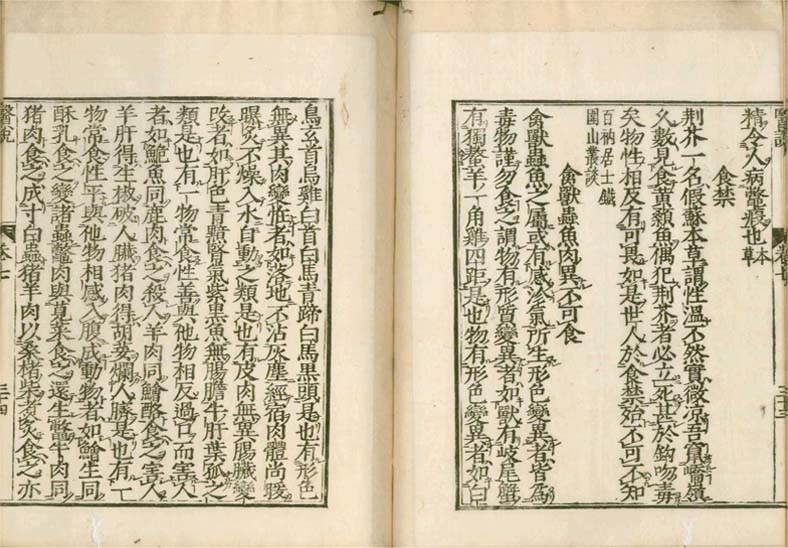 醫說
卷七
三十三
精令人病鼈瘕也本草
食禁
荆芥一名假蘇本草謂性溫不然實微凉吾寓嶠嶺
久數見食黃顙魚偶犯荆芥者必立死甚於鈎吻毒
矣物性相反有可畏如是世人於食禁殆不可不知
百衲居士鐵
圍山叢談
禽獸蟲魚肉異不可食
禽獸蟲魚之屬或有感沴氣所生形色變異者皆爲
毒物謹勿食之謂物有形質變異者如獸有岐尾蟹
有獨螯羊一角雞四距是也物有形色變異者如白
鳥玄首烏雞白首白馬青蹄白馬黑頭是也有形色
無異其肉變恠者如落地不沾灰塵經宿肉體尚暖
曝炙不燥入水自動之類是也有皮肉無異腸臟變
改者如肝色青黯腎氣紫黑魚無腸膽牛肝葉孤之
類是也有一物常食性善與他物相反過口而害人
者如鮠魚同鹿肉食之殺人羊肉同鱠酪食之害人
羊肝得生椒破人臟猪肉得胡荽爛人臍是也有一
物常食性平與他物相感入腹成動物者如鱠生同
酥乳食之變諸蟲鼈肉與莧菜食之還生鼈牛肉同
猪肉食之成寸白蟲猪羊肉以桑楮柴煮炙食之亦
醫說
卷七
三十四